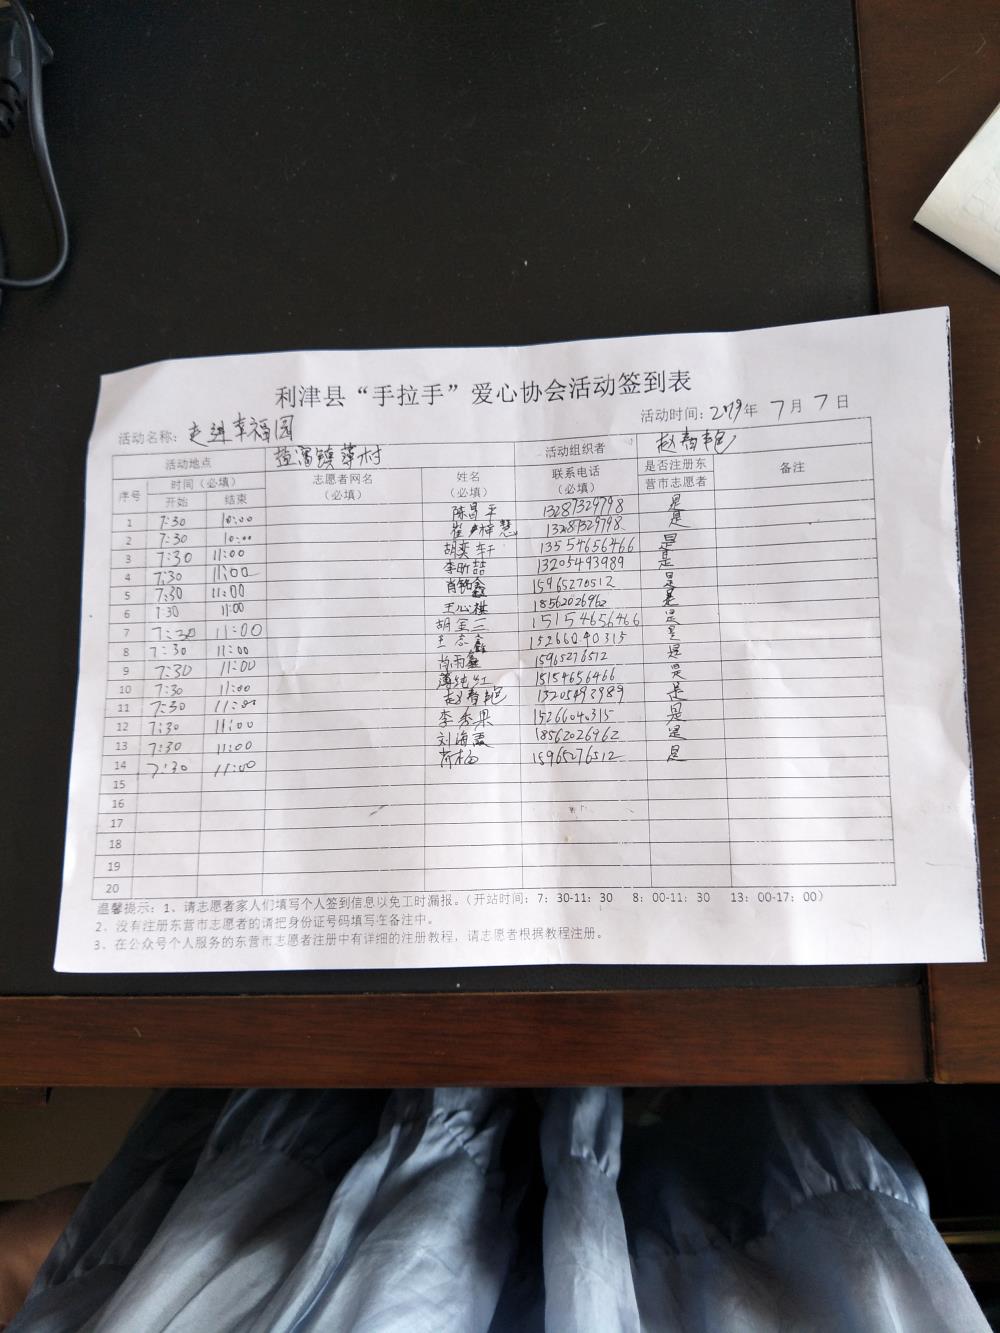 利津县“手拉手”爱心协会活动签到表
活动名称：走进幸福园 活动时间：2019年7月7日
活动地点 盐窝镇 村 活动组织者 赵春艳
序号 时间（必填） 志愿者网名（必填） 姓名（必填） 联系电话（必填） 是否注册东营市志愿者 备注
开始 结束
1 7:30 10:00 陈昌平 13287329798 是
2 7:30 10:00 崔 慧 13287329798 是
3 7:30 11:00 胡奕轩 13554656466 是
4 7:30 11:00 李昕喆 13205493989 是
5 7:30 11:00 肖铭鑫 15965270512 是
6 7:30 11:00 王心祺 18562026962 是
7 7:30 11:00 胡金三 15154656466 是
8 7:30 11:00 王志鑫 15266040315 是
9 7:30 11:00 肖雨鑫 15965276512 是
10 7:30 11:00 薄纯红 15154656466 是
11 7:30 11:00 赵春艳 13205493989 是
12 7:30 11:00 李秀果 15266040315 是
13 7:30 11:00 刘海霞 18562026962 是
14 7:30 11:00 15965276512 是
15
16
17
18
19
20
温馨提示：1、请志愿者家人们填写个人签到信息以免工时漏报。（开站时间：7：30-11：30 8：00-11：30 13：00-17：00）
2、没有注册东营市志愿者的请把身份证号码填写在备注中。
3、在公众号个人服务的东营市志愿者注册中有详细的注册教程，请志愿者根据教程注册。